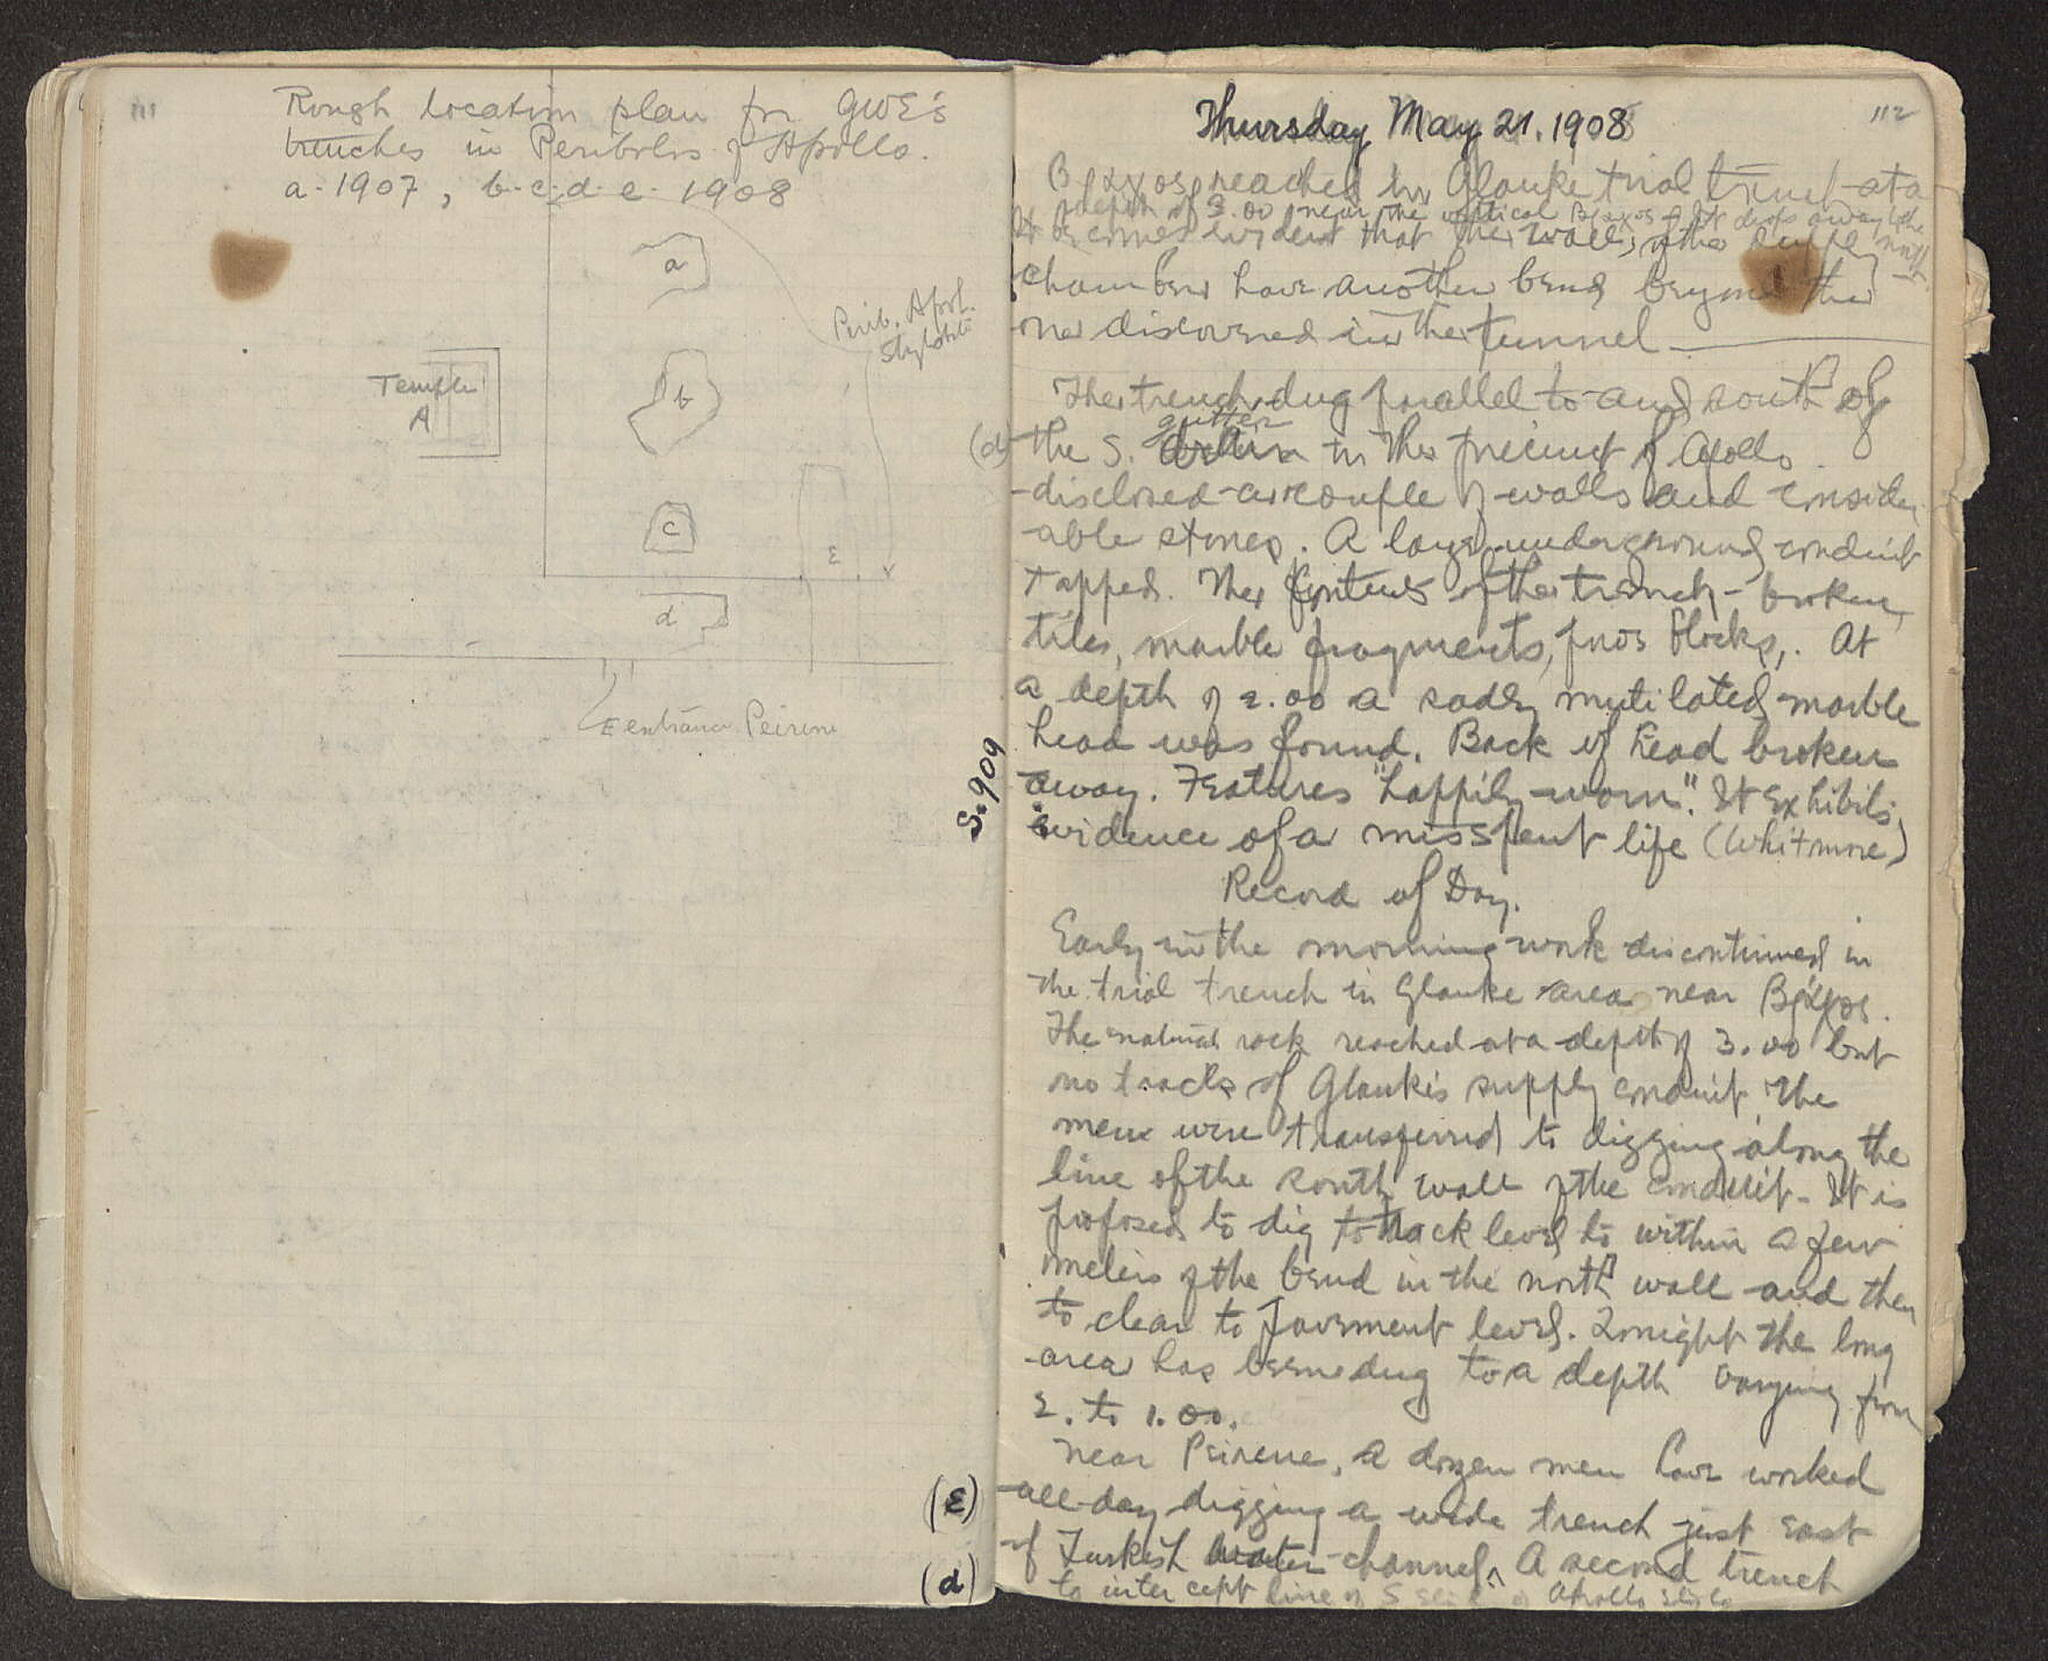 111
Rough location plan for GWE's
trenches in Peribolos of Apollo.
a-1907, b-c-d-e- 1908
a
Perib. Apol.
Stylobate
Temple
A
b
c
ε
d
E entrance Peirene
112
Thursday May 21. 1908
Βράχος reached in Glauke trial trench at a
depth of 3.00 near the vertical Βράχος & it drops away to the north
It becomes evident that the walls of the supply
chamber have another bend beyond the
one discovered in the tunnel
The trench dug parallel to and south of
gutter
(d) the S. in the precinct of Apollo
disclosed a couple of walls and consider
able stones. A large underground conduit
tapped. The contents of the trench - broken
tiles, marble fragments, poros blocks,. At
a depth of 2.00 a sadly mutilated marble
head was found. Back of head broken
S-909
away. Features "happily worn". It exhibits
evidence of a misspent life (Whitmore)
Record of Day.
Early in the morning work discontinued in
the trial trench in Glauke area near Βράχος.
The natural rock reached at a depth of 3.00 but
no tracks of Glauke's supply conduit. The
men were transferred to digging along the
line of the south wall of the conduit. It is
proposed to dig to level to within a few
meters of the bend in the north wall and then
to clear to pavement level. Tonight the long
area has been dug to a depth varying from
2. to 1.00.
Near Peirene, a dozen men have worked
(ε) all day digging a wide trench just east
of Turkish water channel. A second trench
(d) to intercept line of S side of Apollo